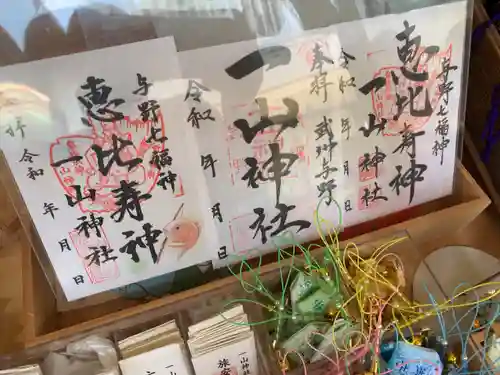 与野七福神
恵比寿神
一山神社
令和 年 月
拝
奉拝
武州与野
一山神社
令和 年 月
与野七福神
恵比寿神
一山神社
令和 年 月
一山神社